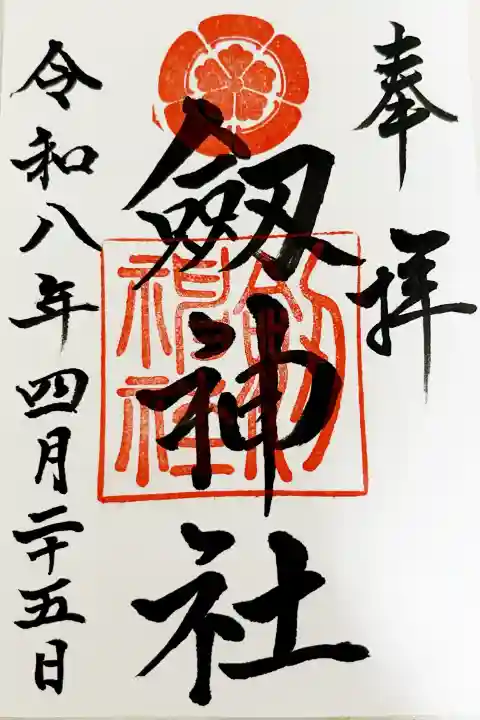 奉拝
劔神社
劔神社
令和八年四月二十五日